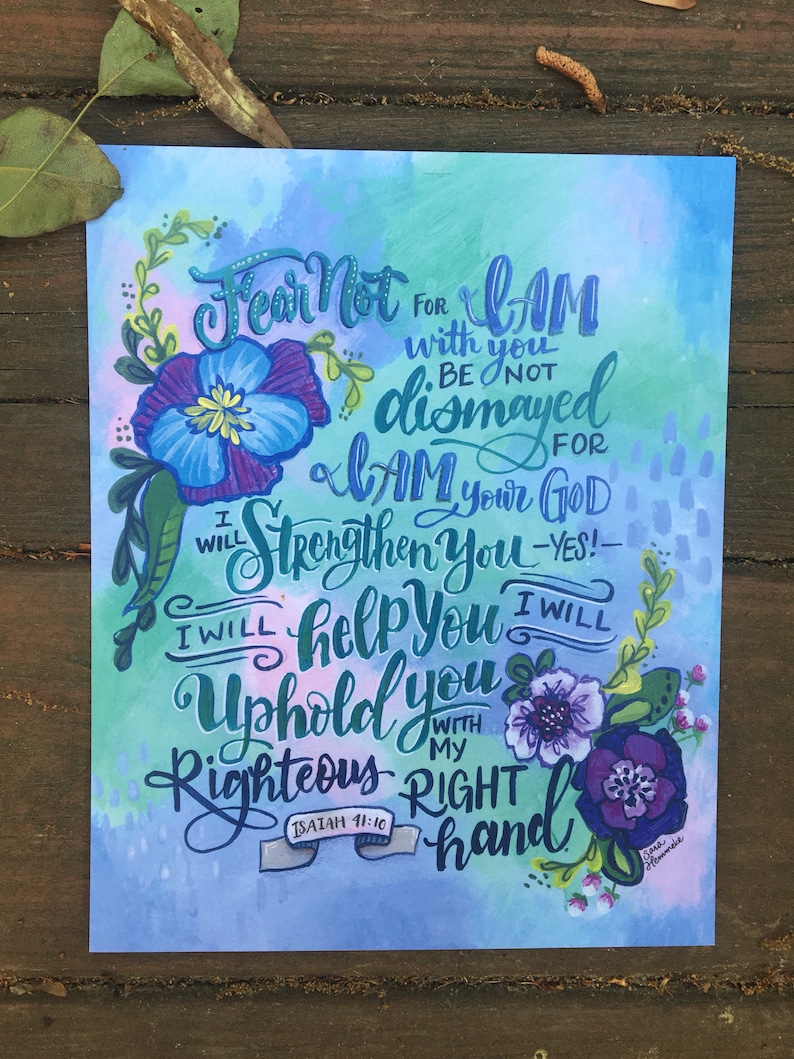 Fear Not FOR I AM
with you
BE NOT
dismayed
FOR
I AM your GOD
I WILL Strengthen You -YES!-
I WILL help You I WILL
Uphold you
WITH MY
Righteous RIGHT
hand.
ISAIAH 41:10
Sara Hemmeke